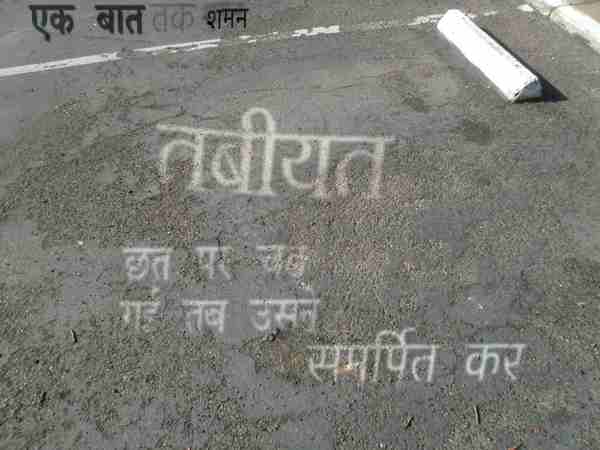 एक बात तक शमन
तबीयत
छत पर चढ
गई तब उसने
समर्पित कर